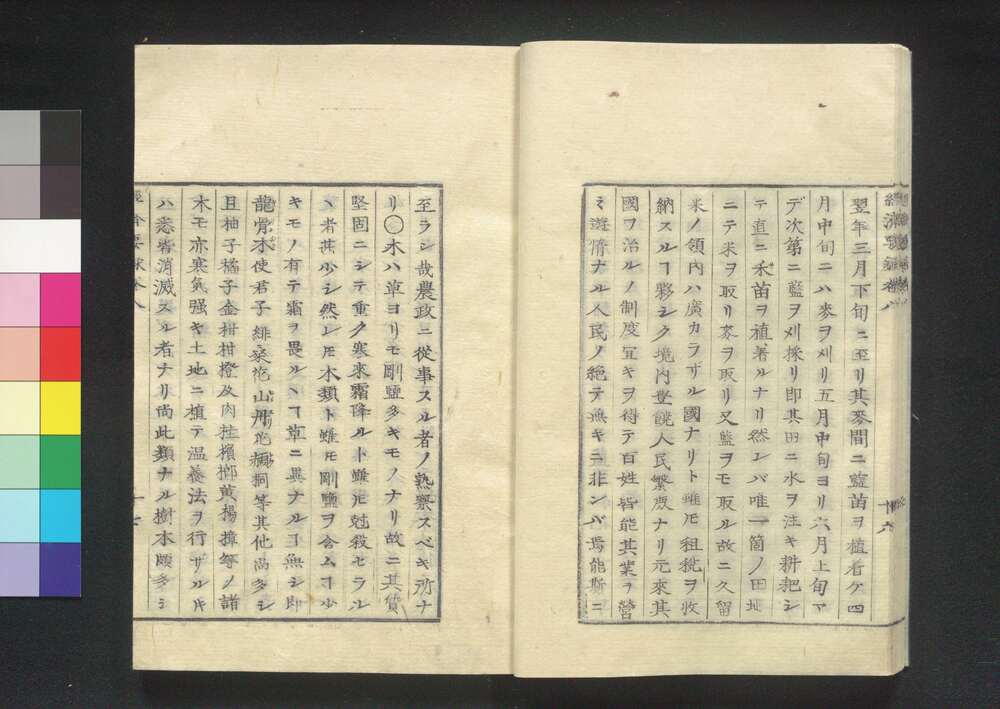 翌年三月下旬ニ至リ其麥間ニ藍苗ヲ植付ケ四
月中旬ニハ麥ヲ刈リ五月中旬ヨリ六月上旬マ
デ次第ニ藍ヲ刈採リ即其田ニ水ヲ注キ耕耙シ
テ直ニ禾苗ヲ植著ルナリ然レバ唯一箇ノ田地
ニテ米ヲ取リ麥ヲ取リ又藍ヲモ取ル故ニ久留
米ノ領內ハ廣カラザル國ナリト雖モ租税ヲ收
納スルヿ夥シク境內豊饒人民繁庶ナリ元來其
國ヲ治ルノ制度宜キヲ得テ百姓皆能其業ヲ營
ミ遊惰ナル人民ノ絶テ無キニ非ンバ焉能斯ニ
十六
至ラン哉農政ニ從事スル者ノ熟察スベキ所ナ
リ○木ハ草ヨリモ剛鹽多キモノナリ故ニ其質
堅固ニシテ重ク寒來霜降ルト雖モ尅殺セラル
丶者甚少シ然レモ木類ト雖モ剛鹽ヲ含ムヿ少
キモノ有テ霜ヲ畏ルヽヿ草ニ異ナルヿ無シ即
龍骨木使君子緋桑花山丹花頳桐等其他尚多シ
且柚子橘子金柑柑橙及肉桂檳榔黄楊樟等ノ諸
木モ亦寒氣强キ土地ニ植テ温養法ヲ行ザルㇳキ
ハ悉皆消滅スル者ナリ尚此類ナル樹木頗多シ